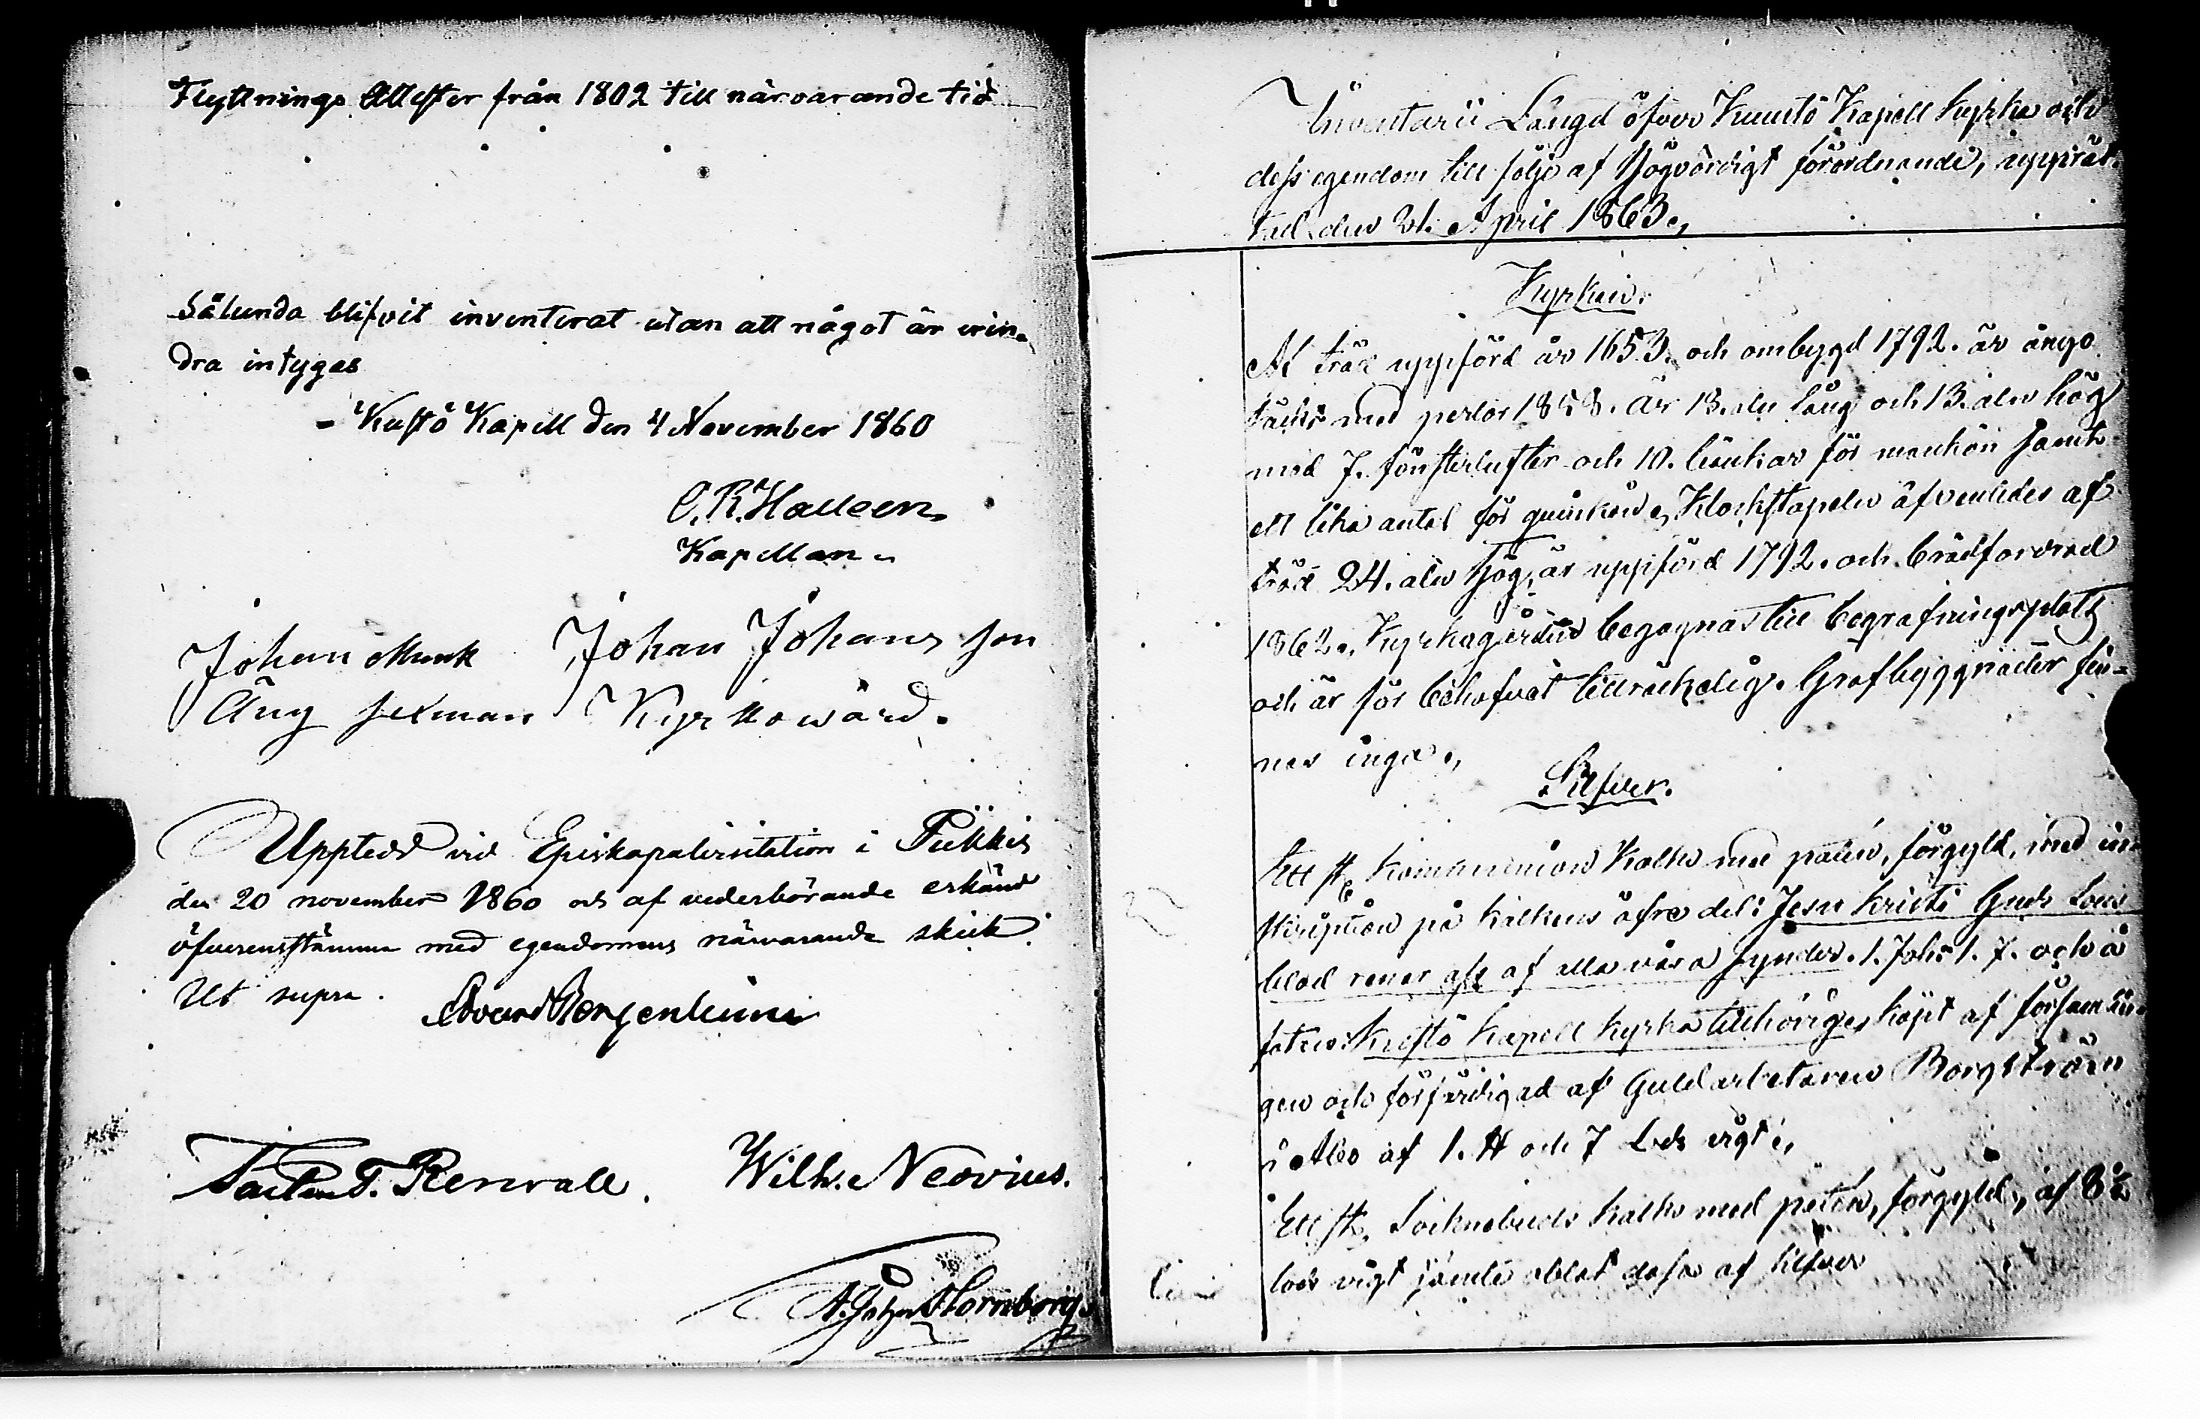 Flyttnings Attester från 1802 till närvarande tid
Sålunda blifvit inventerat utan att något är erin-
dra intygas
- Kustö Kapell den 4 November 1860
C. R. Halleen
Kapellan.
Johan Munk Johan Johans son
Aug Selman Kyrkowärd.
Uppläst vid Episkopalvisitation i Piikkis
den 20 november 1860 och af vederbörande erkändt
öfverensstämma med egendomens närvarande skick.
Ut supra. Edvard Bergenheim
T. Renvall. Wilh. Neovius.
A. John Hornborg
Inventarii Längd öfver Kuustö Kapell kyrka och
dess egendom till följe af Högvördigt förordnande, upprät-
tad den 21. April 1863.,
Kyrkan.
Af träd uppförd år 1653. och ombygd 1792. är ånyo
täckt med pertor 1858. Är 13. aln lång och 13. aln hög
med 7. fönsterlufter och 10. bänkar för mankön samt
ett lika antal för quinkön., Klockstapeln äfvenledes af
träd 24. aln hög, är uppförd 1792. och brädfordrad
1862., Kyrkogården begagnas till begrafningsplats
och är för behofvet tillräckelig. Grafbyggnader fin-
nas inga.,
Silfver.
Ett st. kommunion Kalk med patén, förgyld, med in-
skription på kalkens öfre del: Jesu Kristi Guds Sons
blod renar oss af alla våra synder. 1. Joh: 1. 7. och å
foten: Kustö Kapell kyrka tillhörige, köpt af försam lin-
gen och förfärdigad af Guldarbetaren Borgström
i Åbo af 1. ℔ och 7 Lods vigt.,
Ett st. Sockenbuds kalk med patén, förgyld, af 8½
lods vigt jämte oblat dosa af silfver